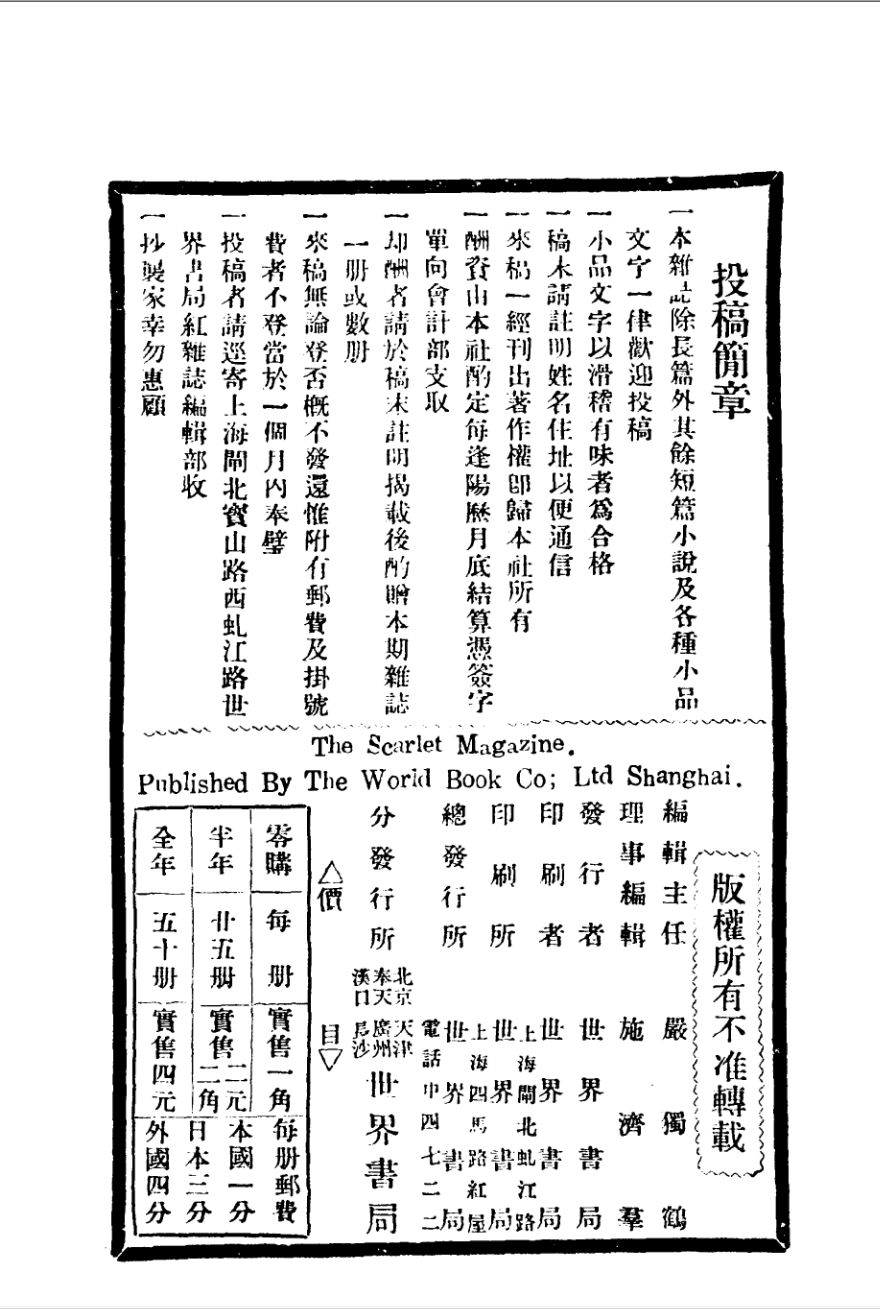 投稿簡章
一本雜誌除長篇外其餘短篇小說及各種小品
文字一律歡迎投稿
一小品文字以滑稽有味者爲合格
一稿末請註明姓名住址以便通信
一來稿一經刊出著作權卽歸本社所有
一酬資由本社酌定每逢陽歷月底結算憑簽字
單向會計部支取
一却酬者請於稿末註明揭載後酌贈本期雜誌
一册或數册
一來稿無論登否槪不發還惟附有郵費及掛號
費者不登當於一個月內奉璧
一投稿者請逕寄上海閘北寳山路西虬江路世
界書局紅雜誌編輯部收
一抄襲家幸勿惠顧
The Scarlet Magazine.
Published By The World Book Co; Ltd Shanghai.
版權所有不准轉載
編輯主任 嚴獨鶴
理事編輯 施濟羣
發行者 世界書局
印刷者 世界書局
上海閘北虬江路
印刷所 世界書局
上海四馬路紅屋
總發行所 世界書局
電話中四七二二
分發行所
北京 天津
奉天 廣州
漢口 長沙
世界書局
△價目▽
零購 每册 實售一角
半年 廿五册 實售二元二角
全年 五十册 實售四元
每册郵費
本國一分
日本三分
外國四分